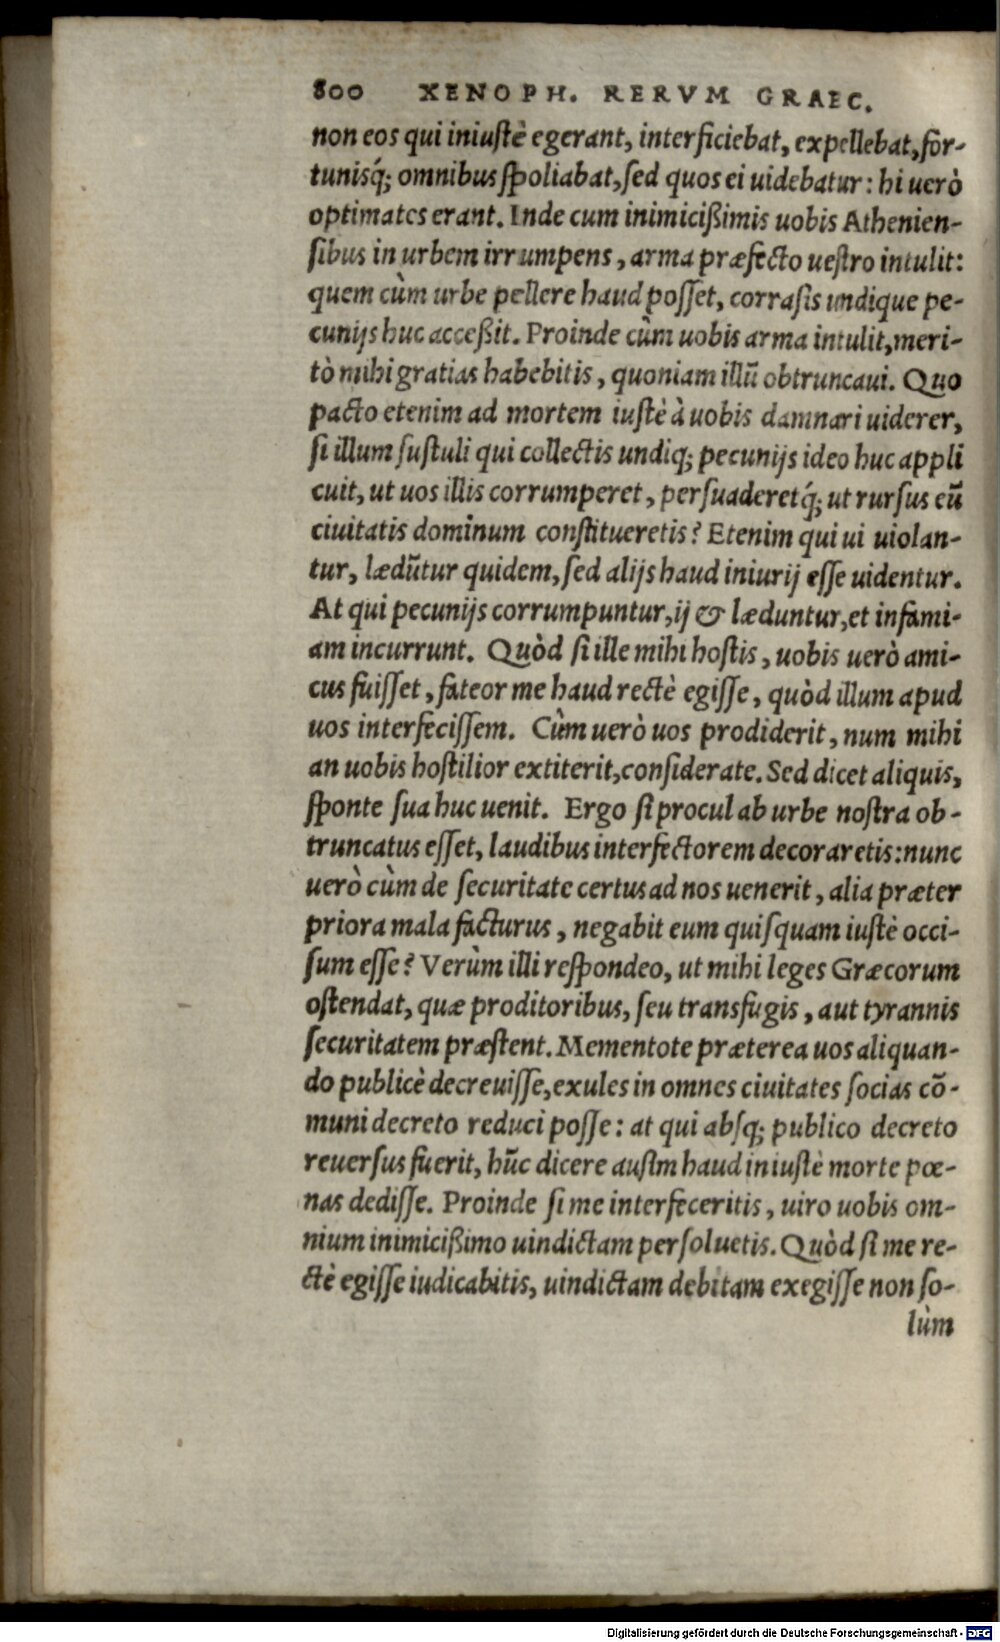 800 XENOPH. RERVM GRAEC.
non eos qui iniustè egerant, interficiebat, expellebat, for-
tunisq́; omnibus spoliabat, sed quos ei uidebatur: hi uerò
optimates erant. Inde cum inimicißimis uobis Athenien-
sibus in urbem irrumpens, arma præfecto uestro intulit:
quem cùm urbe pellere haud posset, corrasis undique pe-
cunijs huc acceßit. Proinde cùm uobis arma intulit, meri-
tò mihi gratias habebitis, quoniam illũ obtruncaui. Quo
pacto etenim ad mortem iustè à uobis damnari uiderer,
si illum sustuli qui collectis undiq; pecunijs ideo huc appli
cuit, ut uos illis corrumperet, persuaderetq́; ut rursus eũ
ciuitatis dominum constitueretis? Etenim qui ui uiolan-
tur, lædũtur quidem, sed alijs haud iniurij esse uidentur.
At qui pecunijs corrumpuntur, ij & læduntur, et infami-
am incurrunt. Quòd si ille mihi hostis, uobis uerò ami-
cus fuisset, fateor me haud rectè egisse, quòd illum apud
uos interfecissem. Cùm uerò uos prodiderit, num mihi
an uobis hostilior extiterit, considerate. Sed dicet aliquis,
sponte sua huc uenit. Ergo si procul ab urbe nostra ob-
truncatus esset, laudibus interfectorem decoraretis: nunc
uerò cùm de securitate certus ad nos uenerit, alia præter
priora mala facturus, negabit eum quisquam iustè occi-
sum esse? Verùm illi respondeo, ut mihi leges Græcorum
ostendat, quæ proditoribus, seu transfugis, aut tyrannis
securitatem præstent. Mementote præterea uos aliquan-
do publicè decreuisse, exules in omnes ciuitates socias cõ-
muni decreto reduci posse: at qui absq; publico decreto
reuersus fuerit, hũc dicere ausim haud iniustè morte pœ-
nas dedisse. Proinde si me interfeceritis, uiro uobis om-
nium inimicißimo uindictam persoluetis. Quòd si me re-
ctè egisse iudicabitis, uindictam debitam exegisse non so-
lùm
Digitalisierung gefördert durch die Deutsche Forschungsgemeinschaft - DFG